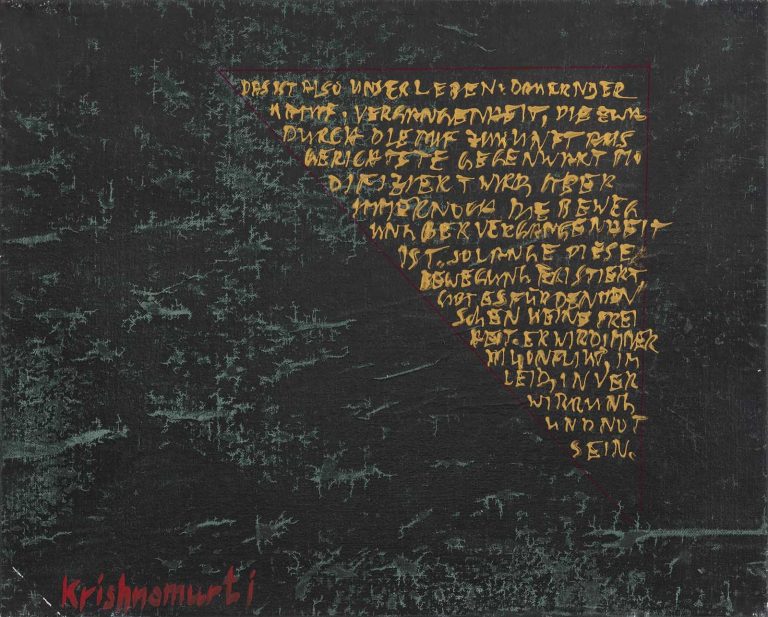 DAS IST ALSO UNSER LEBEN: DAUERNDER
KAMPF. VERGANGENHEIT, DIE ZWAR
DURCH DIE AUF ZUKUNFT AUS
GERICHTETE GEGENWART MO
DIFIZIERT WIRD ABER
IMMERNOCH DIE BEWEG
UNG DER VERGANGENHEIT
IST. SOLANGE DIESE
BEWEGUNG EXISTIERT,
GIBT ES FÜR DEN MEN
SCHEN KEINE FREI
HEIT. ER WIRD IMMER
IM KONFLIKT, IM
LEID, IN VER
WIRRUNG
UND NOT
SEIN.
Krishnamurti